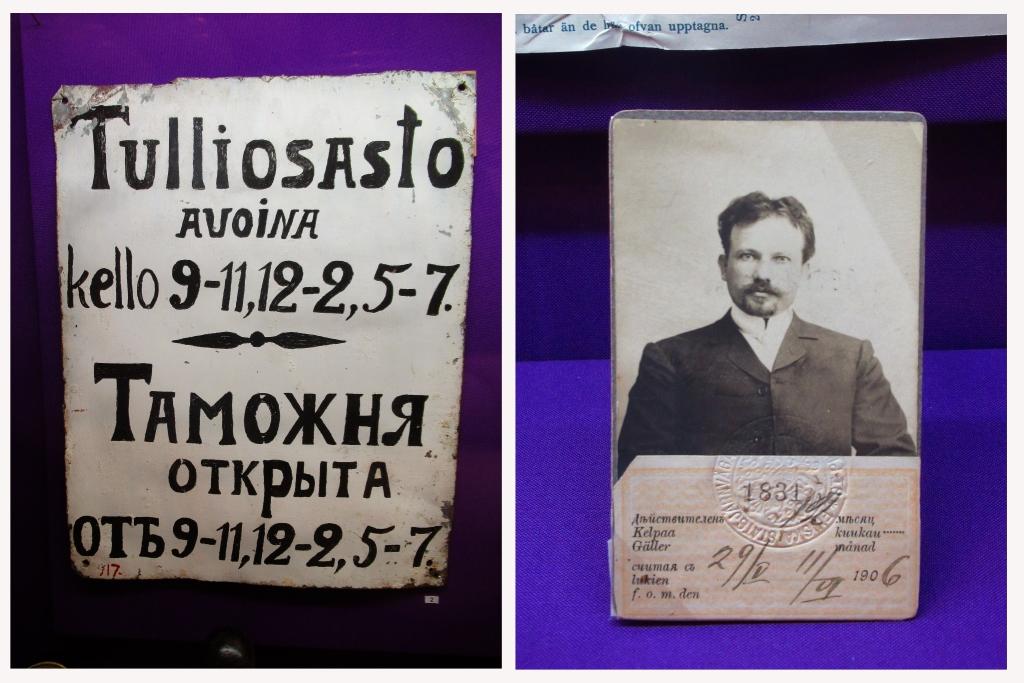 Tulliosasto
avoina
kello 9-11,12-2,5-7.
Таможня
открыта
отъ 9-11,12-2,5-7
917.
2
båtar än de ofvan upptagna.
1831
Дѣйствителенъ мѣсяц
Kelpaa kuukau
Gäller månad
считая съ 29/V 11/VI 1906
lukien
f. o. m. den